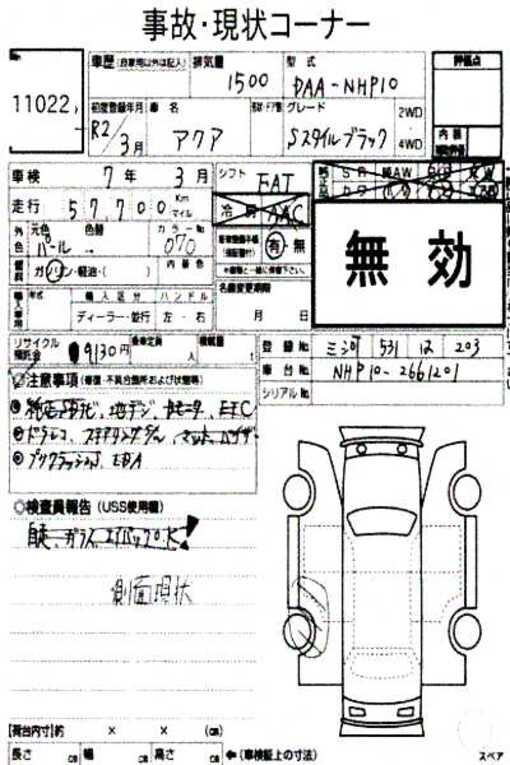 事故・現状コーナー
11022
車歴 (自家用以外は記入) 排気量 1500 型式 DAA-NHP10 評価点
初度登録年月 R2/3月 車名 アクア グレード Sスタイルブラック 2WD 4WD 内装
車検 7年 3月 シフト FAT
走行 57700 Km マイル 冷房 AAC
外色 元色 パール 色替 カラーNo 070 有・無
燃料 ガソリン・軽油・( ) 内装色
名義変更期限 月 日
無効
輸入車用 年式 輸入区分 ハンドル
ディーラー・並行 左・右
リサイクル預託金 9130円 乗車定員 人 積載量 t
登録No 三河 531 は 203
車台No NHP10-2661201
シリアルNo
注意事項 (修復・不具合箇所および状態等)
純正ナビ、地デジ、Bモニタ、ETC
ドラレコ、ステアリングSW
プリクラッシュS、LDA
検査員報告 (USS使用欄)
自走、ガラス、エアバッグOK
側面現状
[荷台内寸]約 × × (cm)
長さ cm 幅 cm 高さ cm ←(車検証上の寸法)
スペア